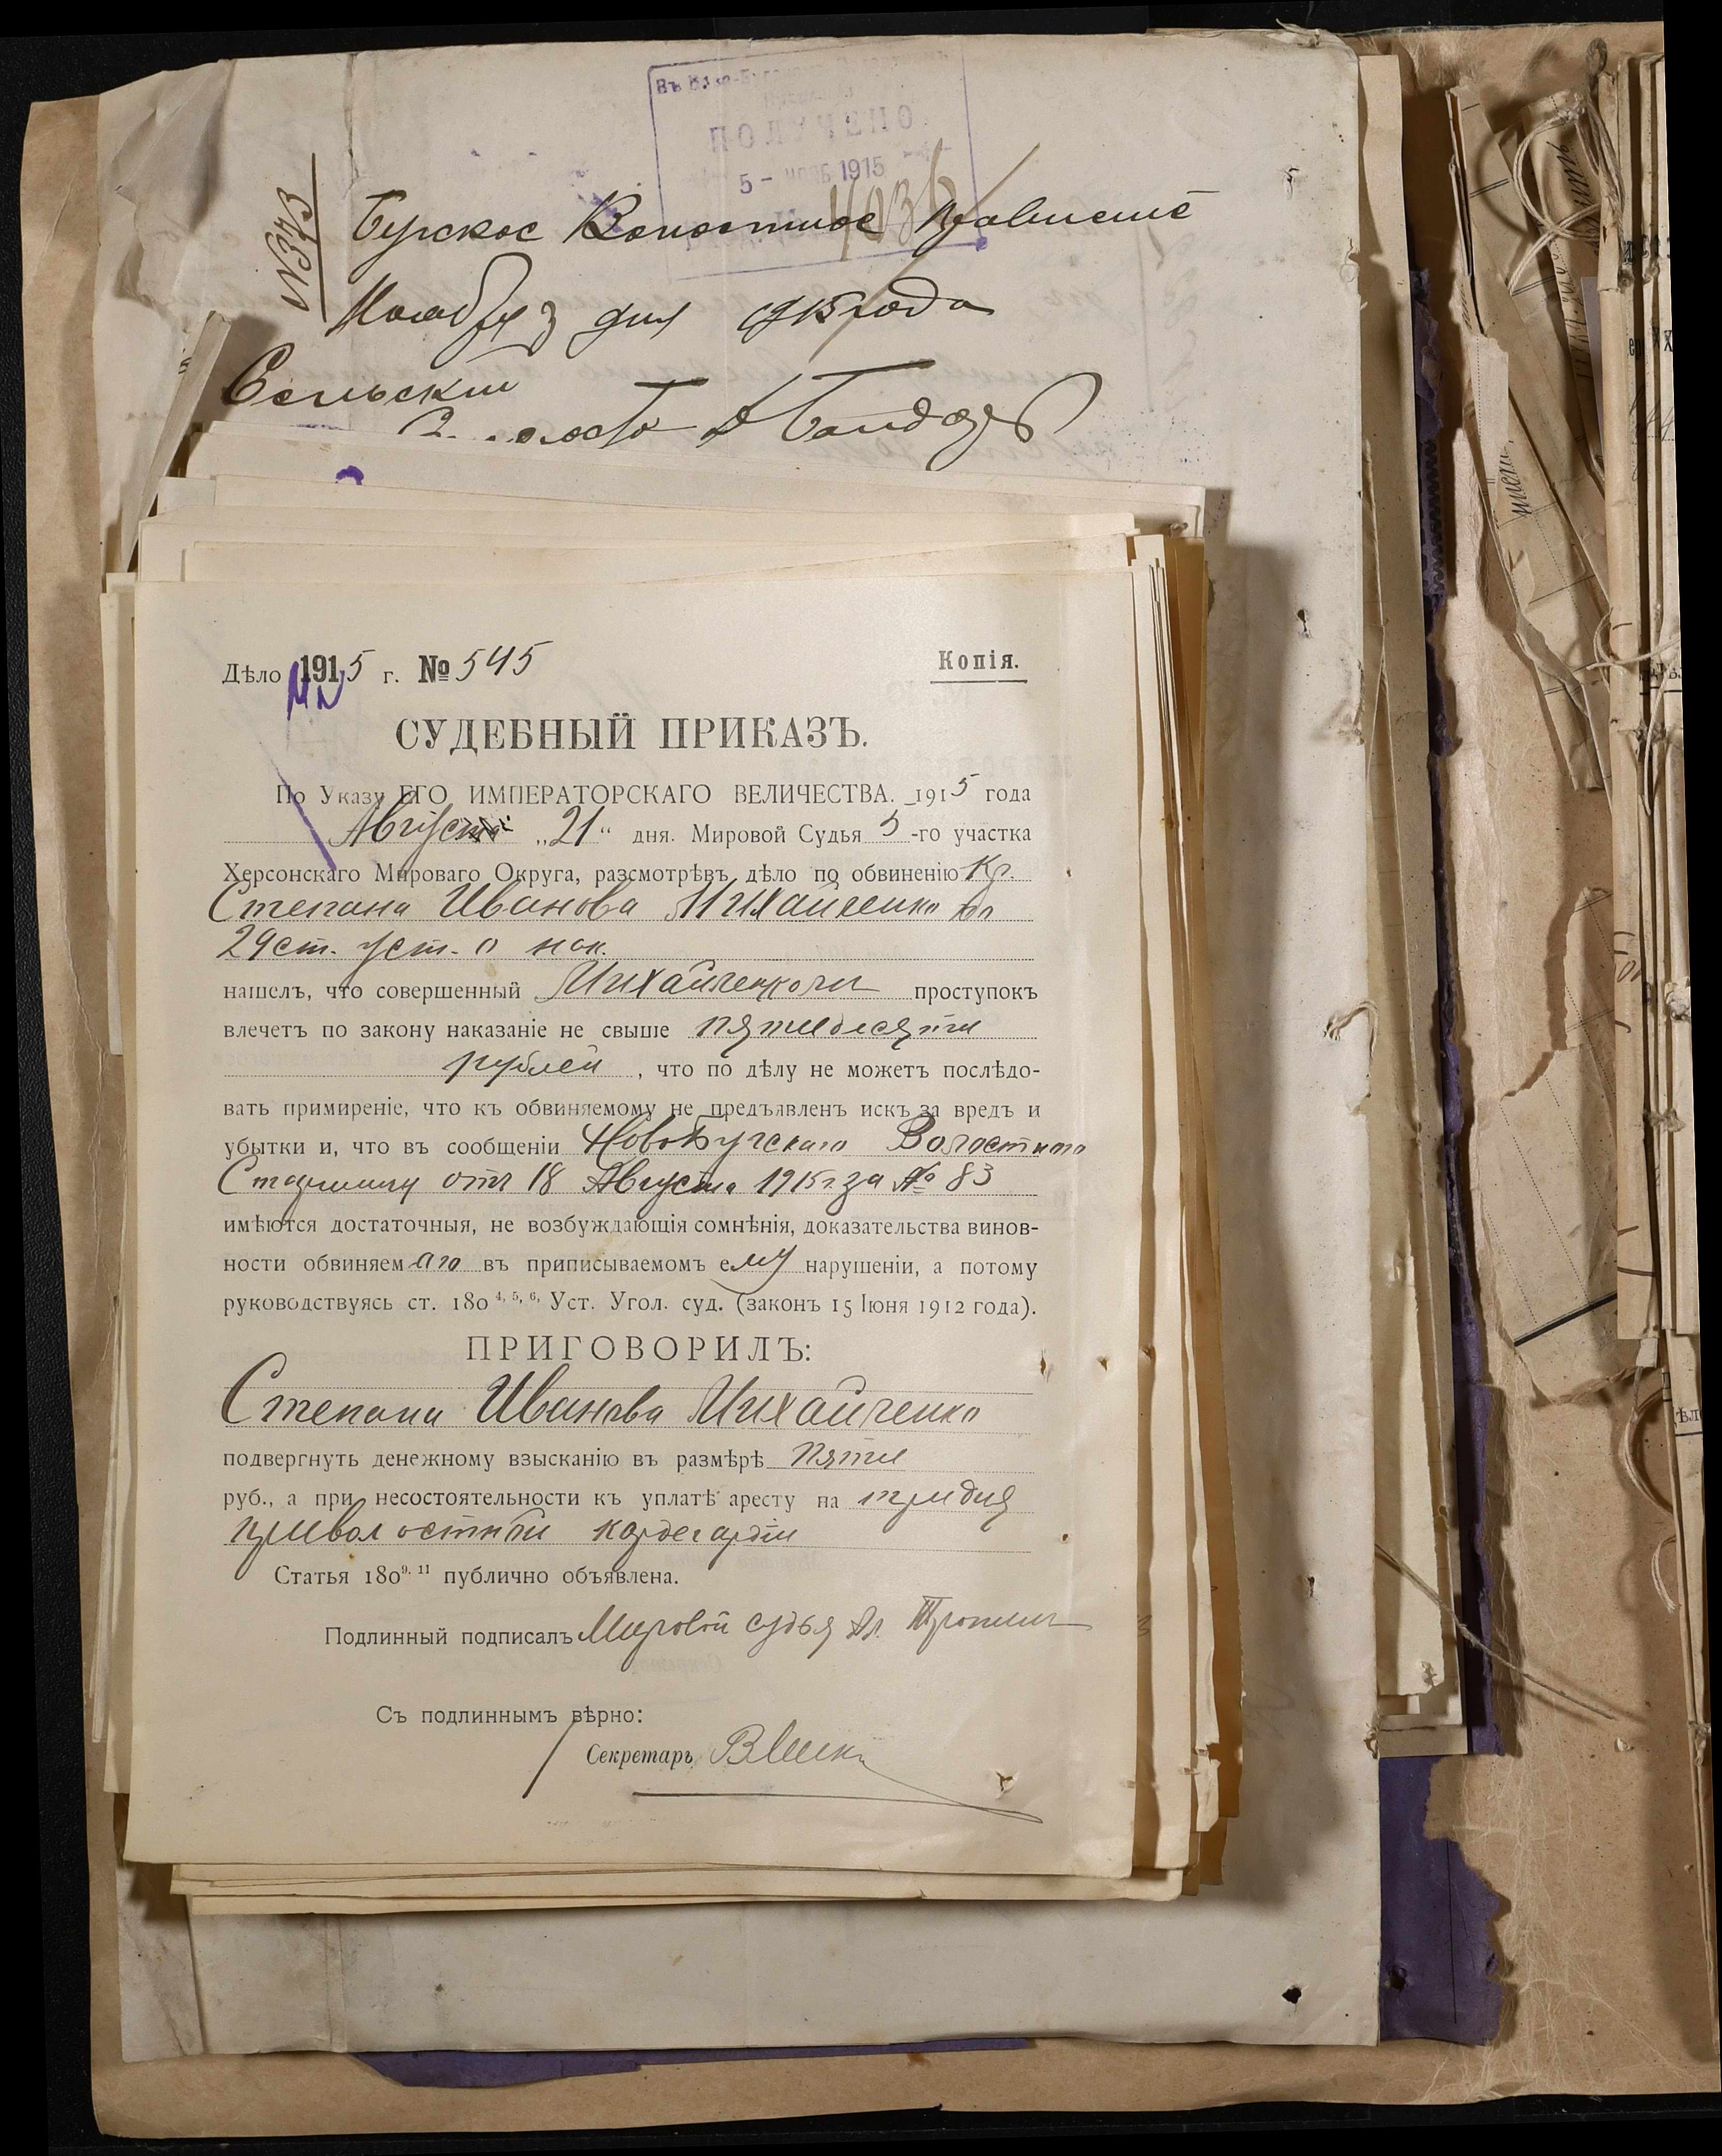 ПОЛУЧЕНО
5 - НОЯБ 1915
№373
Бугское Волостное Правление
Ноября 3 дня 1915 года
Сельский
Дѣло 1915 г. № 545
Копія.
СУДЕБНЫЙ ПРИКАЗЪ.
По Указу ЕГО ИМПЕРАТОРСКАГО ВЕЛИЧЕСТВА. 1915 года
Августа „21“ дня. Мировой Судья 5-го участка
Херсонскаго Мироваго Округа, разсмотрѣвъ дѣло по обвиненію кр.
Степана Иванова Михайченко по
29 ст. уст. о нак.
нашелъ, что совершенный Михайченкомъ проступокъ
влечетъ по закону наказаніе не свыше пятидесяти
рублей, что по дѣлу не можетъ послѣдо-
вать примиреніе, что къ обвиняемому не предъявленъ искъ за вредъ и
убытки и, что въ сообщеніи Новобугскаго Волостного
Старшины отъ 18 Августа 1915 г. за № 83
имѣются достаточныя, не возбуждающія сомнѣнія, доказательства винов-
ности обвиняемаго въ приписываемомъ ему нарушеніи, а потому
руководствуясь ст. 180 4, 5, 6, Уст. Угол. суд. (законъ 15 Іюня 1912 года).
ПРИГОВОРИЛЪ:
Степана Иванова Михайченко
подвергнуть денежному взысканію въ размѣрѣ пяти
руб., а при несостоятельности къ уплатѣ аресту на три дня
при волостной кордегардіи
Статья 180 9, 11 публично объявлена.
Подлинный подписалъ Мировой судья
Съ подлиннымъ вѣрно:
Секретарь